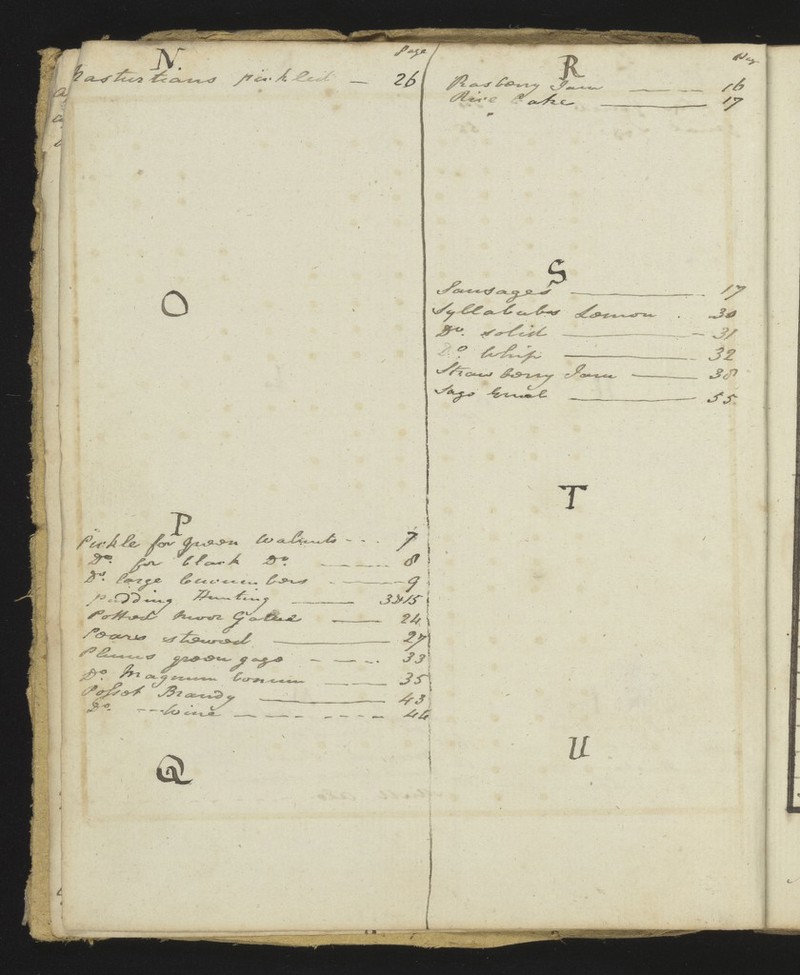 N
Page
Nasturtians pickled — 26
O
P
Pickle for green Walnuts - - . 7
Do. for black Do. — 8
Do. large Cucumbers — 9
pudding Hunting — 3&15
Potted Moor Game — 24
Pears stewed — 27
Plums green gage - — . 33
Do. Magnum bonum — 35
Posset Brandy — 43
Do. - - Wine — — — 44
Q
R
Rasberry Jam — 16
Rice Cake — 17
S
Sausages — 17
Syllabubs Lemon . 30
Do. solid — 31
Do. Whip — 32
Straw berry Jam — 38
Sago Gruel — 55
T
U